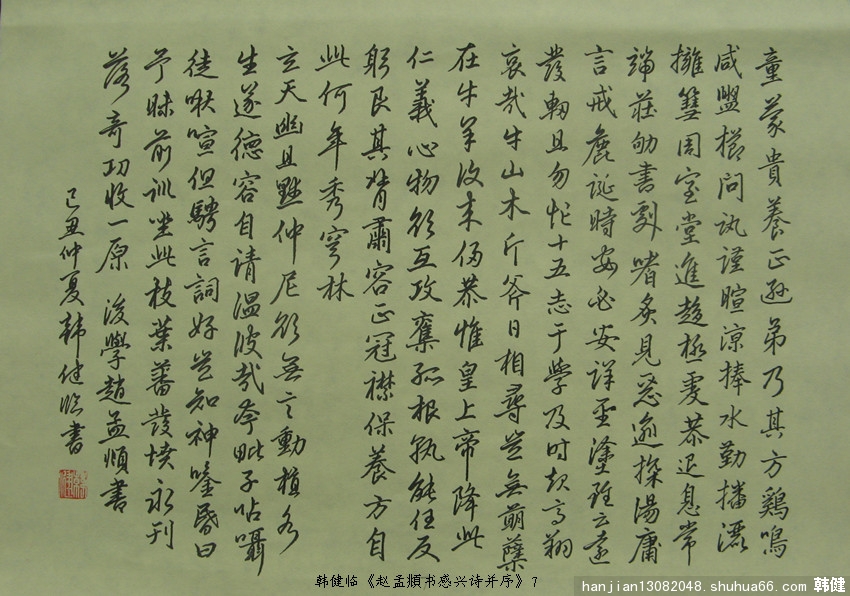 童蒙貴養正孫弟乃其方鷄鳴
咸盥櫛問訊謹暄涼捧水勤播灑
擁篲周室堂進趨極虔恭退息常
端莊劬書劇嗜炙見惡逾探湯庸
言戒麁誕時安必安詳聖塗雖云遠
發軔且勿忙十五志于學及時起高翔
哀哉牛山木斤斧日相尋豈無萌蘖
在牛羊復來侵恭惟皇上帝降此
仁義心物欲互攻奪孤根孰能任反
躬艮其背肅容正冠襟保養方自
此何年秀穹林
玄天幽且默仲尼欲無言動植各
生遂德容自清溫彼哉夸毗子呫囁
徒啾喧但騁言詞好豈知神鑒昏曰
予昧前訓坐此枝葉蕃發憤永刊
落奇功收一原 後學趙孟頫書
己丑仲夏韓健臨書
韩健临《赵孟頫书感兴诗并序》7
hanjian13082048.shuhua66.com 韩健